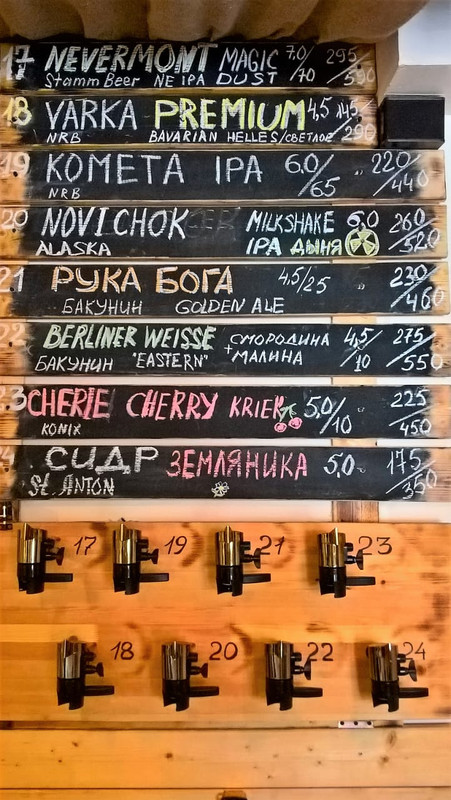 17 NEVERMONT MAGIC 7.0/70 295/590
Stamm Beer NE IPA DUST
18 VARKA PREMIUM 4,5 145/290
NRB BAVARIAN HELLES/СВЕТЛОЕ
19 КОМЕТА IPA 6,0/65 220/440
NRB
20 NOVICHOK MILKSHAKE 6.0 260/520
ALASKA IPA ДЫНЯ
21 РУКА БОГА 4,5/25 230/460
БАКУНИН GOLDEN ALE
22 BERLINER WEISSE СМОРОДИНА 4,5/10 275/550
БАКУНИН "EASTERN" + МАЛИНА
23 CHERIE CHERRY KRIEK 5,0/10 225/450
KONIX
СИДР ЗЕМЛЯНИКА 5,0 175/350
St. ANTON
17 19 21 23
18 20 22 24